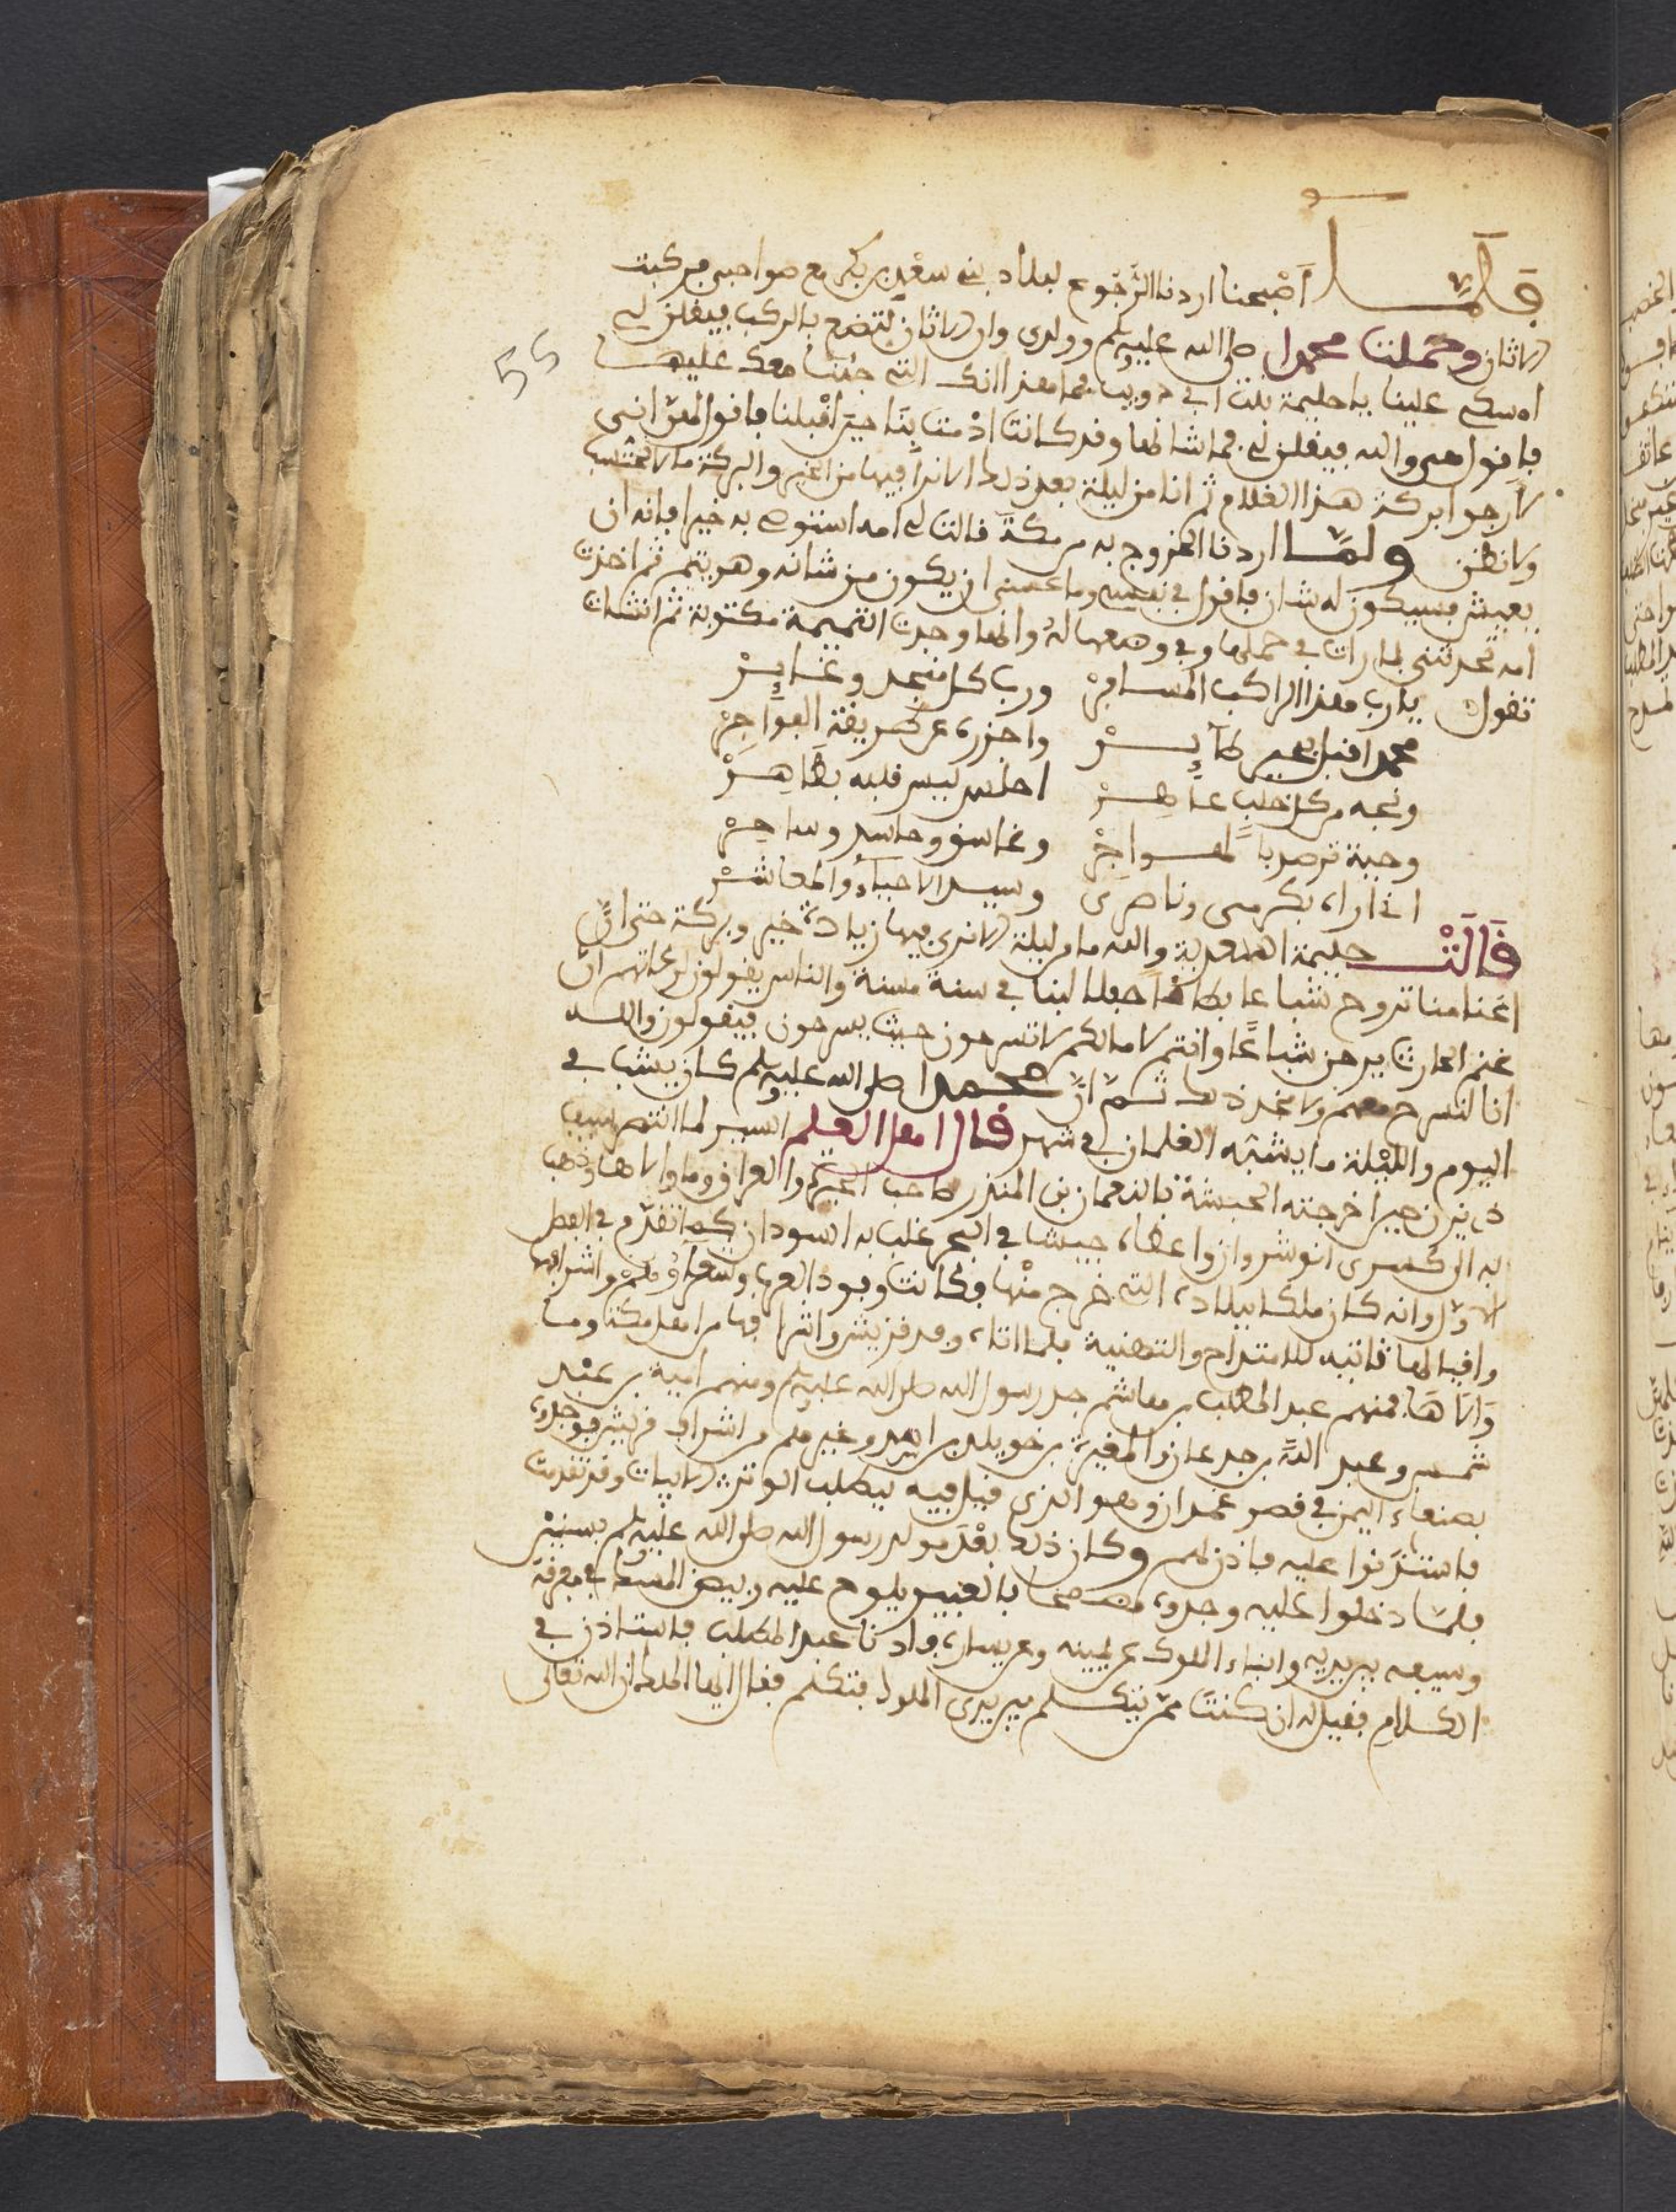 فلما أصبحنا اردنا الرجوع لبلاد بنى سعد بن بكر مع صواحبى فركبت
الاتان وحملت محمدا صلى الله عليه وسلم وولدى وان الاتان لتنضح بالركب فيقلن لى
امسكى علينا يا حليمة بنت ابى ذويب فما هذا اتانك التى جئت معك عليها
فاقول هى والله فيقلن لى فما شانها وقد كانت اذمت بنا حين اقبلنا فاقول لهن انى
لارجوا بركة هذا الغلام ثم انا من ليلة بعد ذلك الا نرا فيها من الخير والبركة ما لا نحتسب
ولا نظن ولما اردنا الخروج به من مكة قالت لى امه استوصى به خيرا فانه ان
يعيش فسيكون له شان فاقول فى نفسى وما عسى ان يكون من شانه وهو يتيم ثم اخذت
امه تحدثنى بما رات فى حملها وفى وضعها له وانها وجدت التميمة مكتوبة ثم انشات
تقول يا رب هذا الراكب المسافر ورب كل منجد وغاير
محمدا اقبل بخير طآير واحذره عن طريقة الفواجر
ونجه من كل عاهر احلس ليس قلبه بطاهر
وحية ترصد بالهواجر وغاسق وحاسد وساحر
انى اراه بكرمى وناصرى وسيد الاحياء والمعاشر
قالت حليمة السعدية والله ما من ليلة الا نرى فيها زيادة خير وبركة حتى ان
اغنامنا تروح شباعا بطانا حفلا لبنا فى سنة مسنة والناس يقولون لرعاتهم ان
غنم الحارث يرحن شباعا وانتم لا مالكم لا تسرحون حيث يسرحون فيقولون والله
انا لنسرح معهم ولا نجد ذلك ثم ان محمدا صلى الله عليه وسلم كان يشب فى
اليوم والليلة ما يشبه الغلمان فى شهر قال اهل العلم السير لما انتصر سيف
ذى يزن حين اخرجته الحبشة بالنعمان بن المنذر صاحب الحيرة والعراق وما والاها وذهب
به الى كسرى انوشروان واعطاه جيشا فى البحر غلب به السودان كما تقدم فى الفصل
الاول وانه كان ملكا ببلاده التى خرج منها فكانت وفود العرب وشعراؤهم واشرافها
واقيالها تاتيه للامتداح والتهنية فلما اتاه وفد قريش واشرافها من اهل مكة وما
والاها فمنهم عبد المطلب بن هاشم جد رسول الله صلى الله عليه وسلم ومنهم امية بن عبد
شمس وعبد الله بن جدعان والمغيرة بن خويلد بن اسد وغيرهم من اشراف قريش فوجدوه
بصنعاء اليمن فى قصر غمدان وهو الذى قيل فيه ليطلب الوتر الابيات وقد تقدمت
فاستاذنوا عليه فاذن لهم وكان ذلك بعد مولد رسول الله صلى الله عليه وسلم بسنتين
فلما دخلوا عليه وجدوه مضمخا بالعبير يلوح عليه وبيص المسك فى مفرقه
وسيفه بين يديه وابناء الملوك عن يمينه وعن يساره فدنا عبد المطلب فاستاذن فى
الكلام فقيل له ان كنت ممن يتكلم بين يدى الملوك فتكلم فقال ايها الملك ان الله تعالى
55